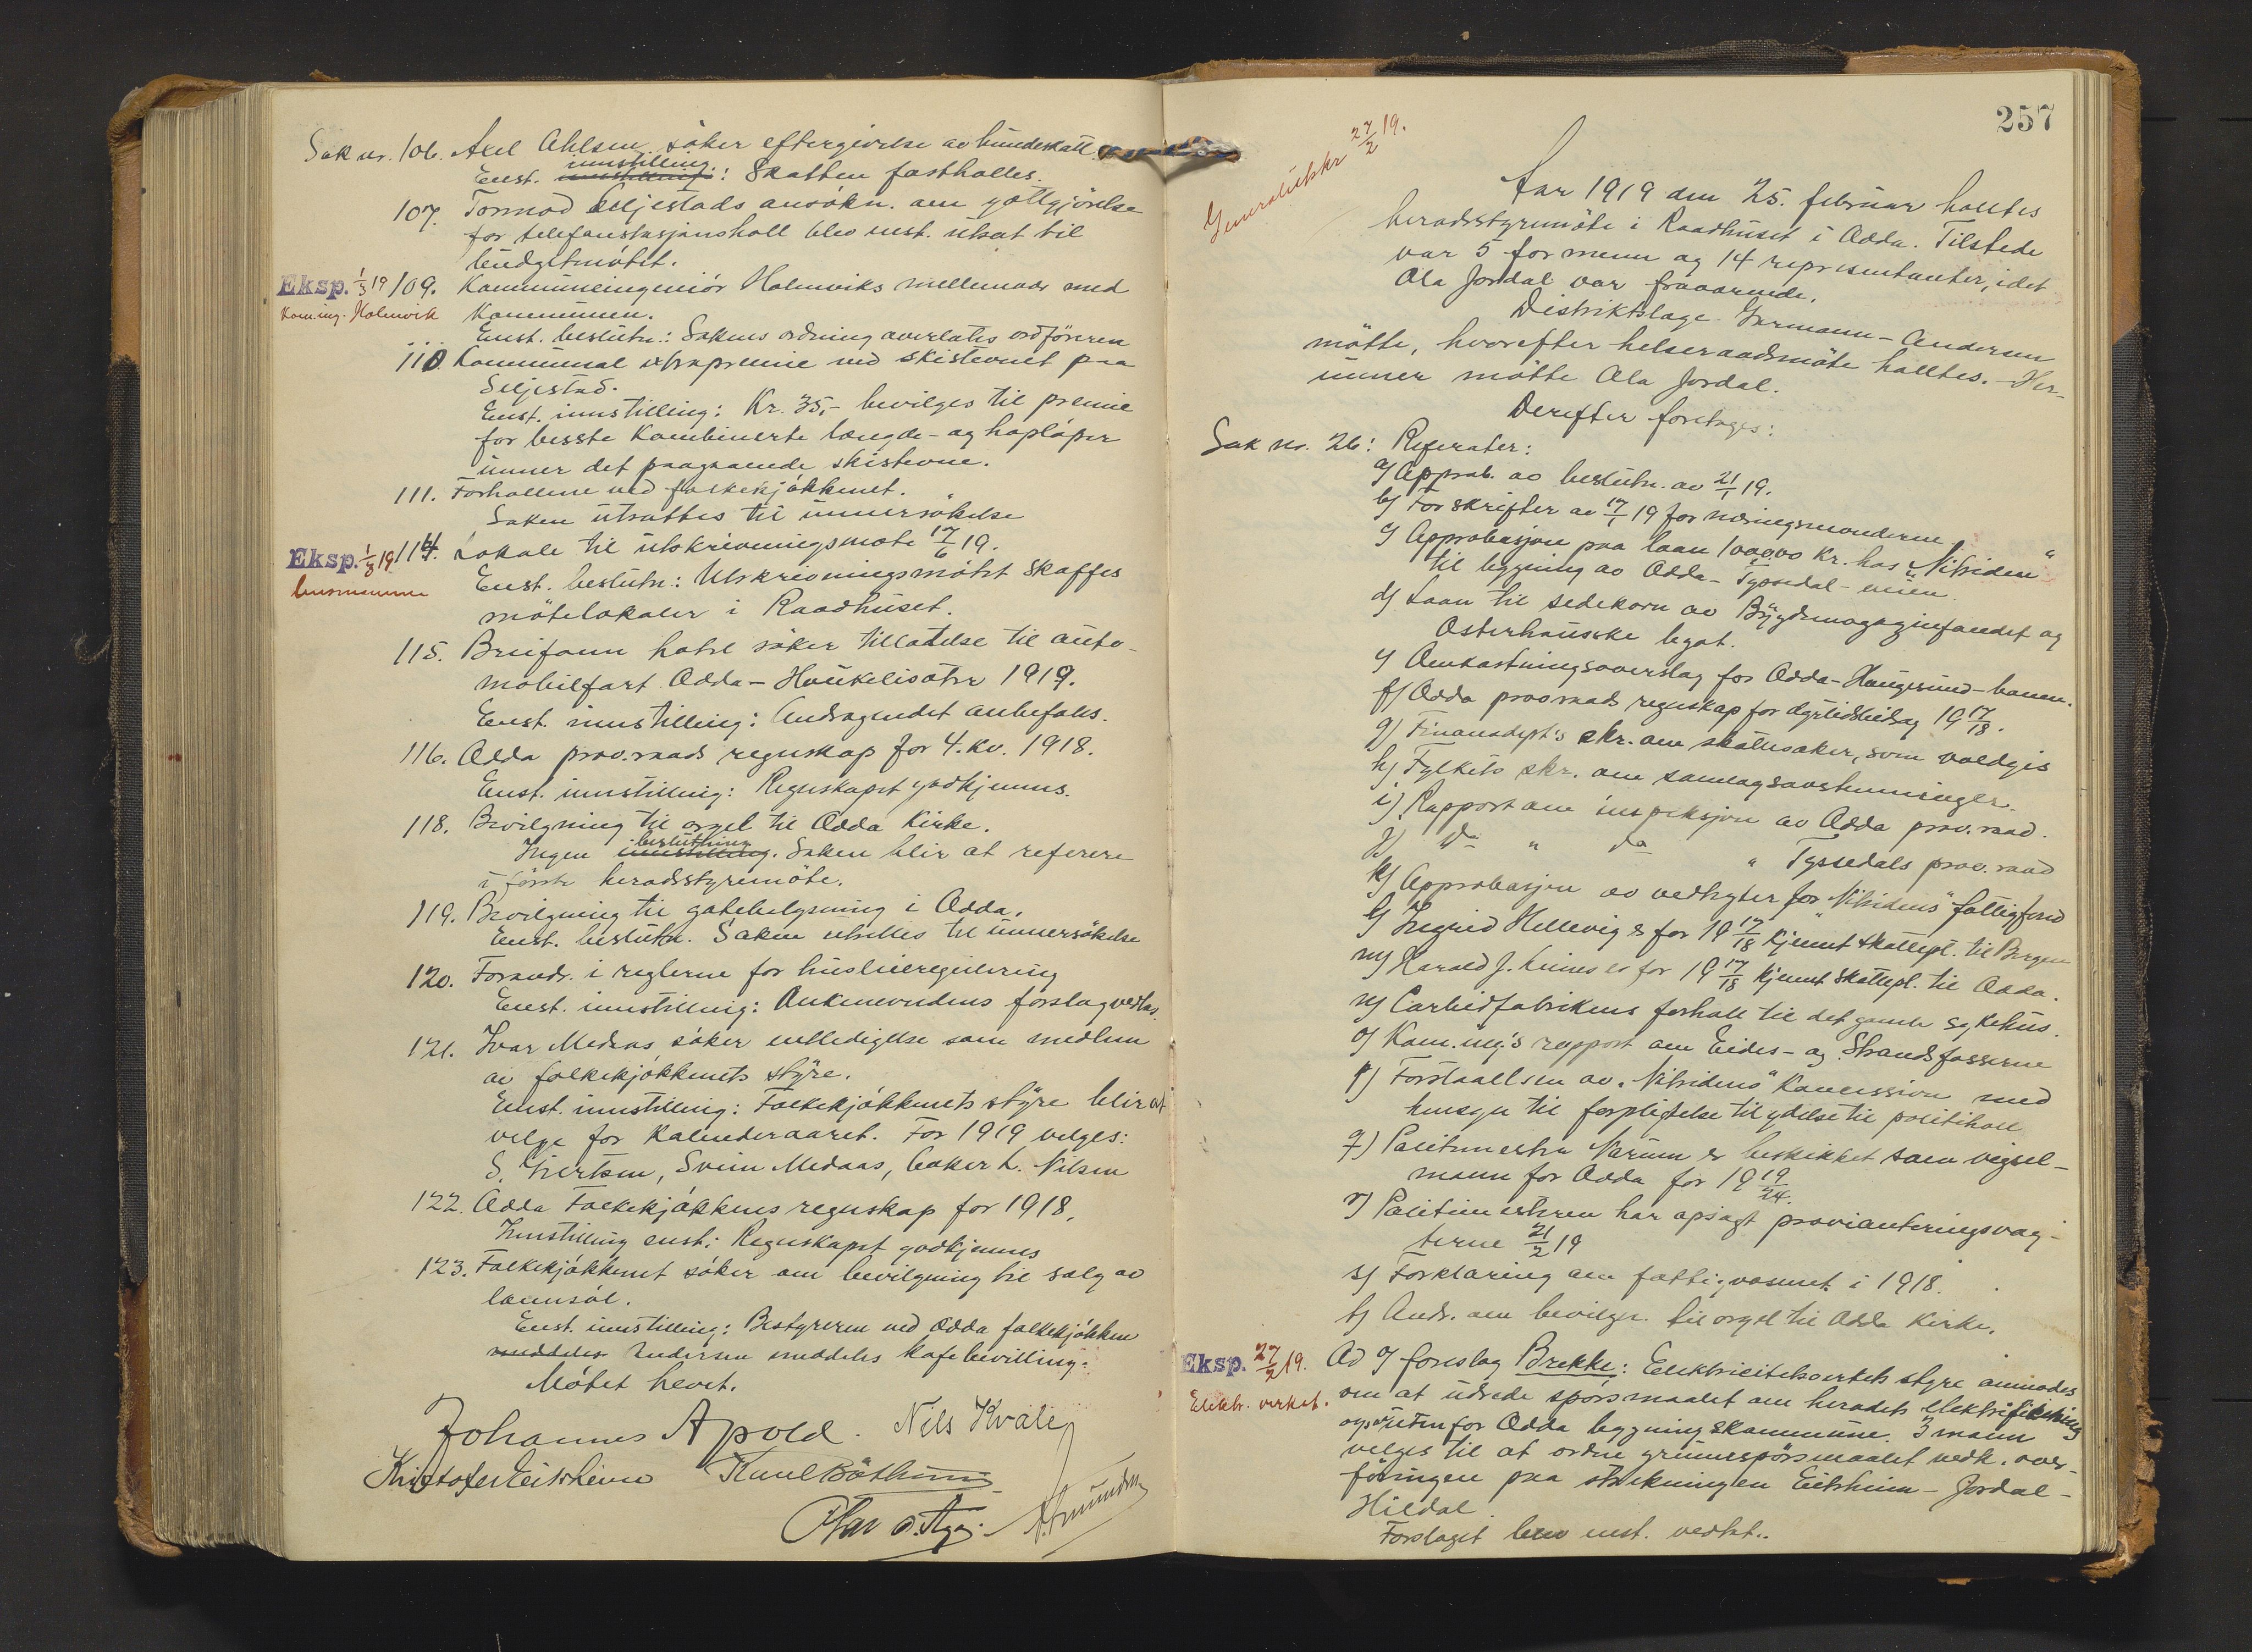 Sak nr. 106. Axel Ahlsen söker eftergivelse av hundeskatt.
innstilling
Enst. innstilling: Skatten fastholles.
107. Tormod Seljestads ansökn. om gottgjörelse
for telefonstasjonsholl blev enst. utsat til
budgetmötet.
Eksp. 1/3 19 109. Kommuneingeniör Holmviks mellemvær med
Kom.ing. Holmvik Kommunen.
Enst. beslutn.: Sakens ordning overlates ordföreren
110. Kommunal extrapremie ved skistevnet paa
Seljestad.
Enst. innstilling: Kr. 35,- bevilges til premie
for beste kombinerte længde- og hoplöper
unner det paagaaende skistevne.
111. Forhollene ved folkekjökkenet.
Saken utsattes til unnersökelse
Eksp. 1/3 19 114. Lokale til utskrivningsmöte 17/6 19.
Enst. beslutn.: Utskrivningsmötet skaffes
mötelokaler i Raadhuset.
115. Breifonn hotel söker tillatelse til auto-
mobilfart Odda - Haukelisæter 1919.
Enst. innstilling: Andragendet anbefales.
116. Odda prov.raads regnskap for 4. kv. 1918.
Enst. innstilling: Regnskapet godkjennes.
118. Bevilgning til orgel til Odda Kirke.
beslutning
Ingen innstilling. Saken blir at referere
i förste heradsstyremöte.
119. Bevilgning til gatebelysning i Odda.
Enst. beslutn. Saken utstilles til unnersökelse
120. Forandr. i reglerne for husleieregulering
Enst. innstilling: Ankenevndens forslag vedtas.
121. Ivar Medaas söker entledigelse som medlem
av folkekjökkenets styre.
Enst. innstilling: Folkekjökkenets styre blir at
velge for kalenderaaret. For 1919 velges:
S. Gjertsen, Svein Medaas, baker L. Nilsen
122. Odda Folkekjökkens regnskap for 1918.
Innstilling enst.: Regnskapet godkjennes
123. Folkekjökkenet söker om bevilgning til salg av
lannsöl.
Enst. innstilling: Bestyreren ved Odda folkekjökken
meddeles Andersen meddeles kafebevilling.
Mötet hevet.
Johannes Apold. Nils Kvale
Kristofer Eitrheim Karl Böthun
Olav O. Aga. Amundsen
257
Generalutskr 27/2 19.
Aar 1919 den 25. februar holltes
heradsstyremöte i Raadhuset i Odda. Tilstede
var 5 formenn og 14 representanter, idet
Ola Jordal var fraværende.
Distriktslæge Germann-Andersen
mötte, hvorefter helseraadsmöte holltes. - Her-
unner mötte Ola Jordal.
Derefter foretages:
Sak nr. 26: Referater:
a) Approb. av beslutn. av 21/1 19.
b) Forskrifter av 17/1 19 for næringsnevnderne.
c) Approbasjon paa laan 100000 Kr. hos "Nitriden"
til bygning av Odda-Tyssedal-veien.
d) Laan til sedekorn av Bygdemagazinfondet og
Osterhauske legat.
e) Omkostningsoverslag for Odda-Haugesund-banen.
f) Odda provraads regnskap for dyrtidsbidrag 19 17/18.
g) Finansdept's skr. om skattesaker, som voldgis
h) Fylkets skr. om samlagsavstemninger.
i) Rapport om inspeksjon av Odda prov.raad.
j) do " do " Tyssedals prov.raad
k) Approbasjon av vedtægter for "Nitridens" fattigfond
l) Ingrid Hellevig er for 19 17/18 kjennt skattepl. til Bergen
m) Harald J. Leines er for 19 17/18 kjennt skattepl. til Odda.
n) Carbidfabrikens forhold til det gamle sykehus.
o) Kom.ing.'s rapport om Eides- og Strandsfossene
p) Forstaaelsen av "Nitridens" Koncession med
hensyn til forpligtelse til ydelse til politiholl
q) Politimester Narum er beskikket som vigsel-
mann for Odda for 19 19/24.
r) Politimesteren har opsagt provianteringsvag-
terne 21/2 19
s) Forklaring om fattigvæsenet i 1918.
t) Andr. om bevilgn. til orgel til Odda Kirke.
Eksp. 27/2 19. Ad o) foreslog Brekke: Elektricitetsverkets styre anmodes
Elektr. verket. om at utrede spörsmaalet om heradets elektrifisering
ogsaa utenfor Odda bygningskommune. 3 mann
velges til at ordne grunnspörsmaalet vedk. over-
föringen paa strekningen Eitrheim - Jordal -
Hildal.
Forslaget blev enst. vedtat.